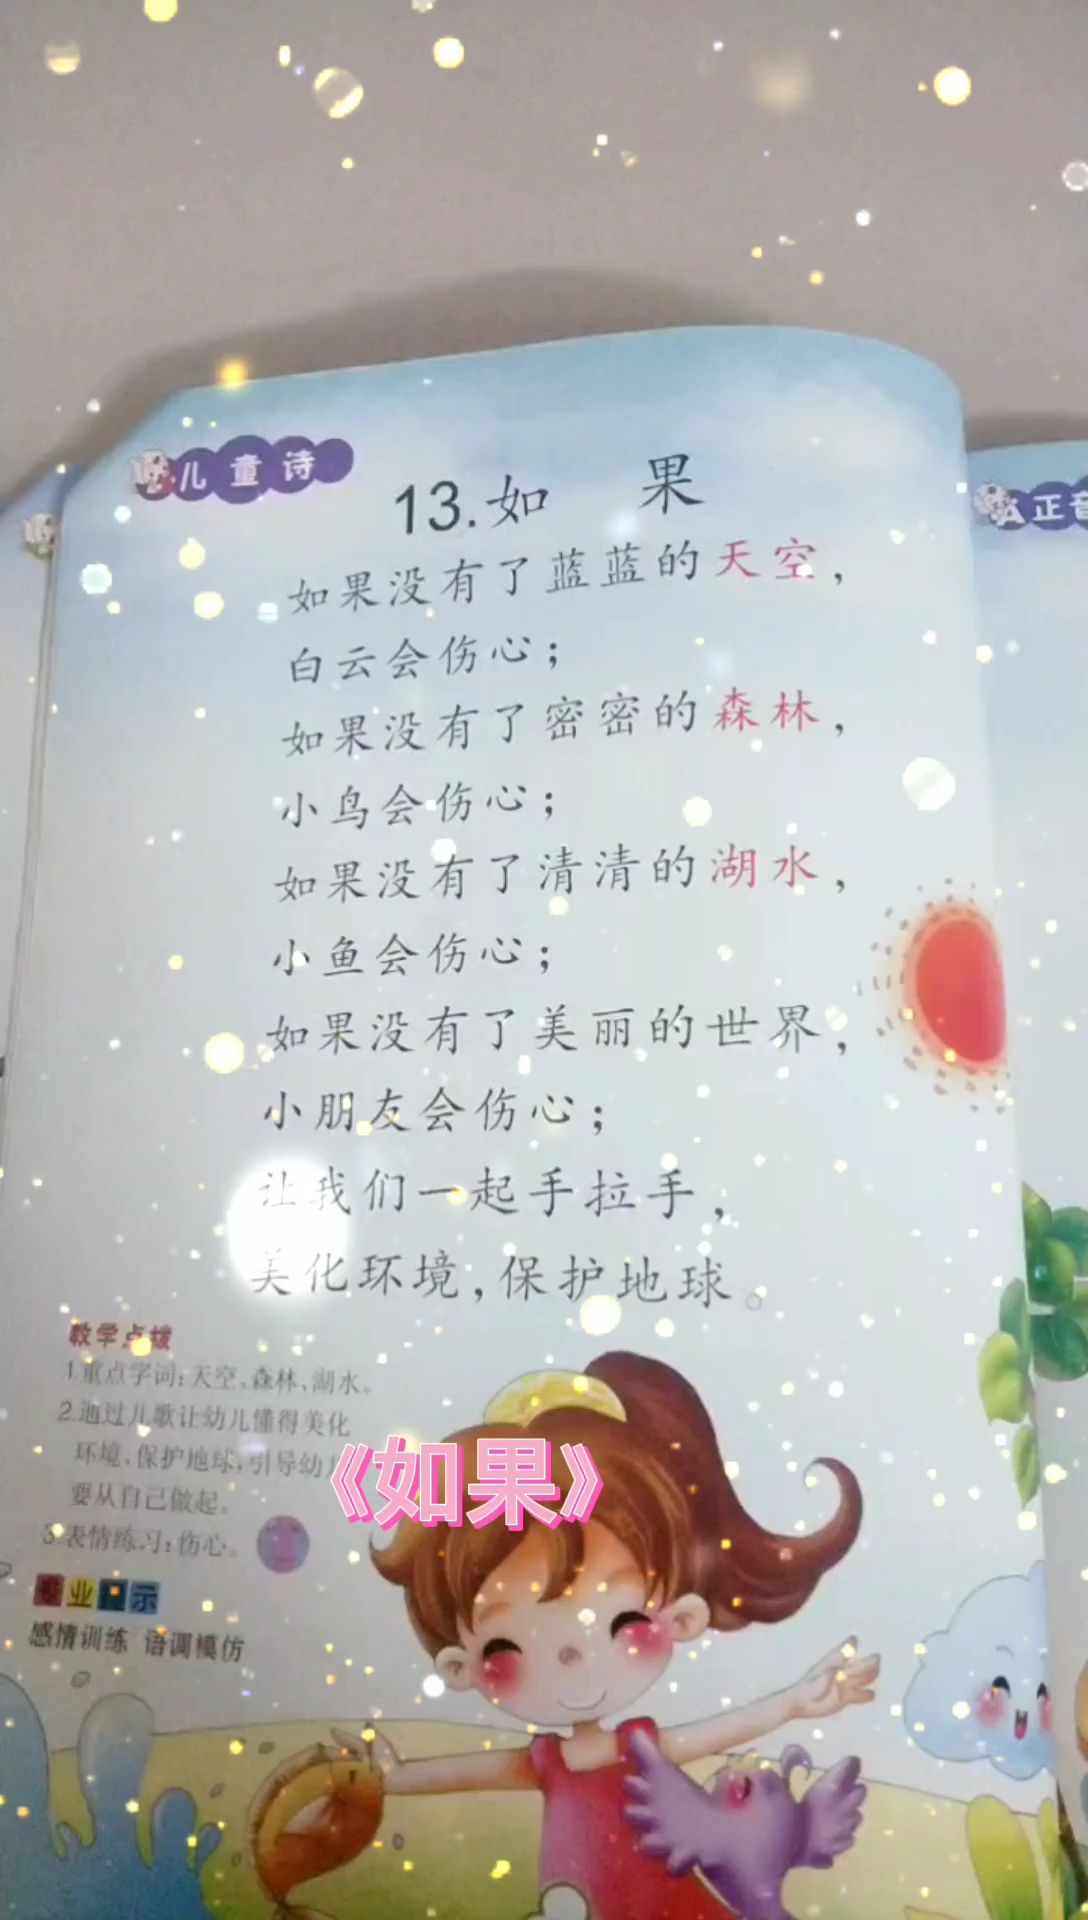 儿童诗
13.如 果
如果没有了蓝蓝的天空，
白云会伤心；
如果没有了密密的森林，
小鸟会伤心；
如果没有了清清的湖水，
小鱼会伤心；
如果没有了美丽的世界，
小朋友会伤心；
让我们一起手拉手，
美化环境，保护地球。
教学点拨
1.重点字词：天空、森林、湖水。
2.通过儿歌让幼儿懂得美化
环境、保护地球，引导幼
要从自己做起。
3.表情练习：伤心。
《如果》
业 示
感情训练 语调模仿
正音